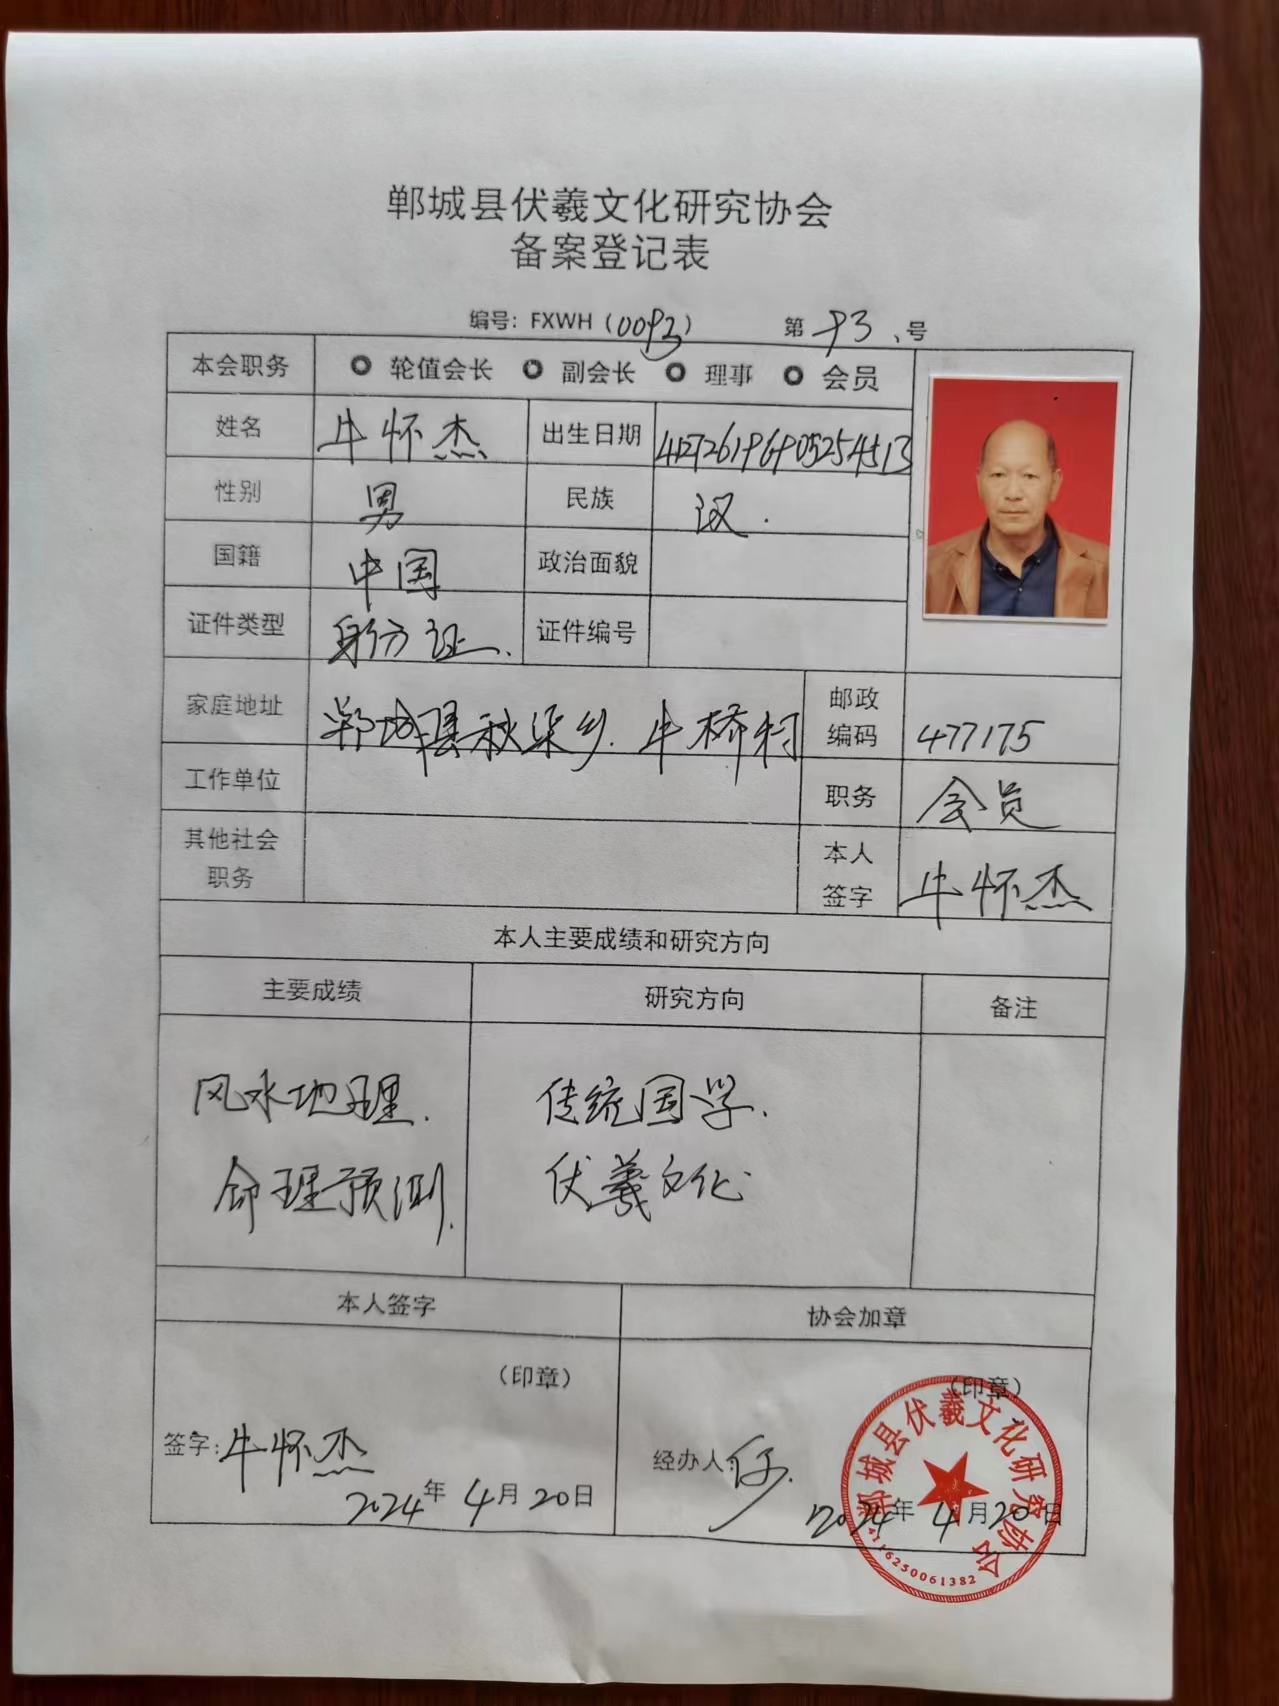 郸城县伏羲文化研究协会
备案登记表
编号：FXWH（0093） 第 93 号
本会职务 轮值会长 副会长 理事 会员
姓名 牛怀杰 出生日期 412726196905254513
性别 男 民族 汉.
国籍 中国 政治面貌
证件类型 身份证. 证件编号
家庭地址 郸城县秋渠乡.牛桥村 邮政编码 477175
工作单位 职务 会员
其他社会职务 本人签字 牛怀杰
本人主要成绩和研究方向
主要成绩 研究方向 备注
风水地理. 传统国学.
命理预测. 伏羲文化
本人签字 协会加章
（印章） （印章）
签字：牛怀杰 经办人
2024年 4月 20日 2024年 4月 20日
郸城县伏羲文化研究协会
4116250061382